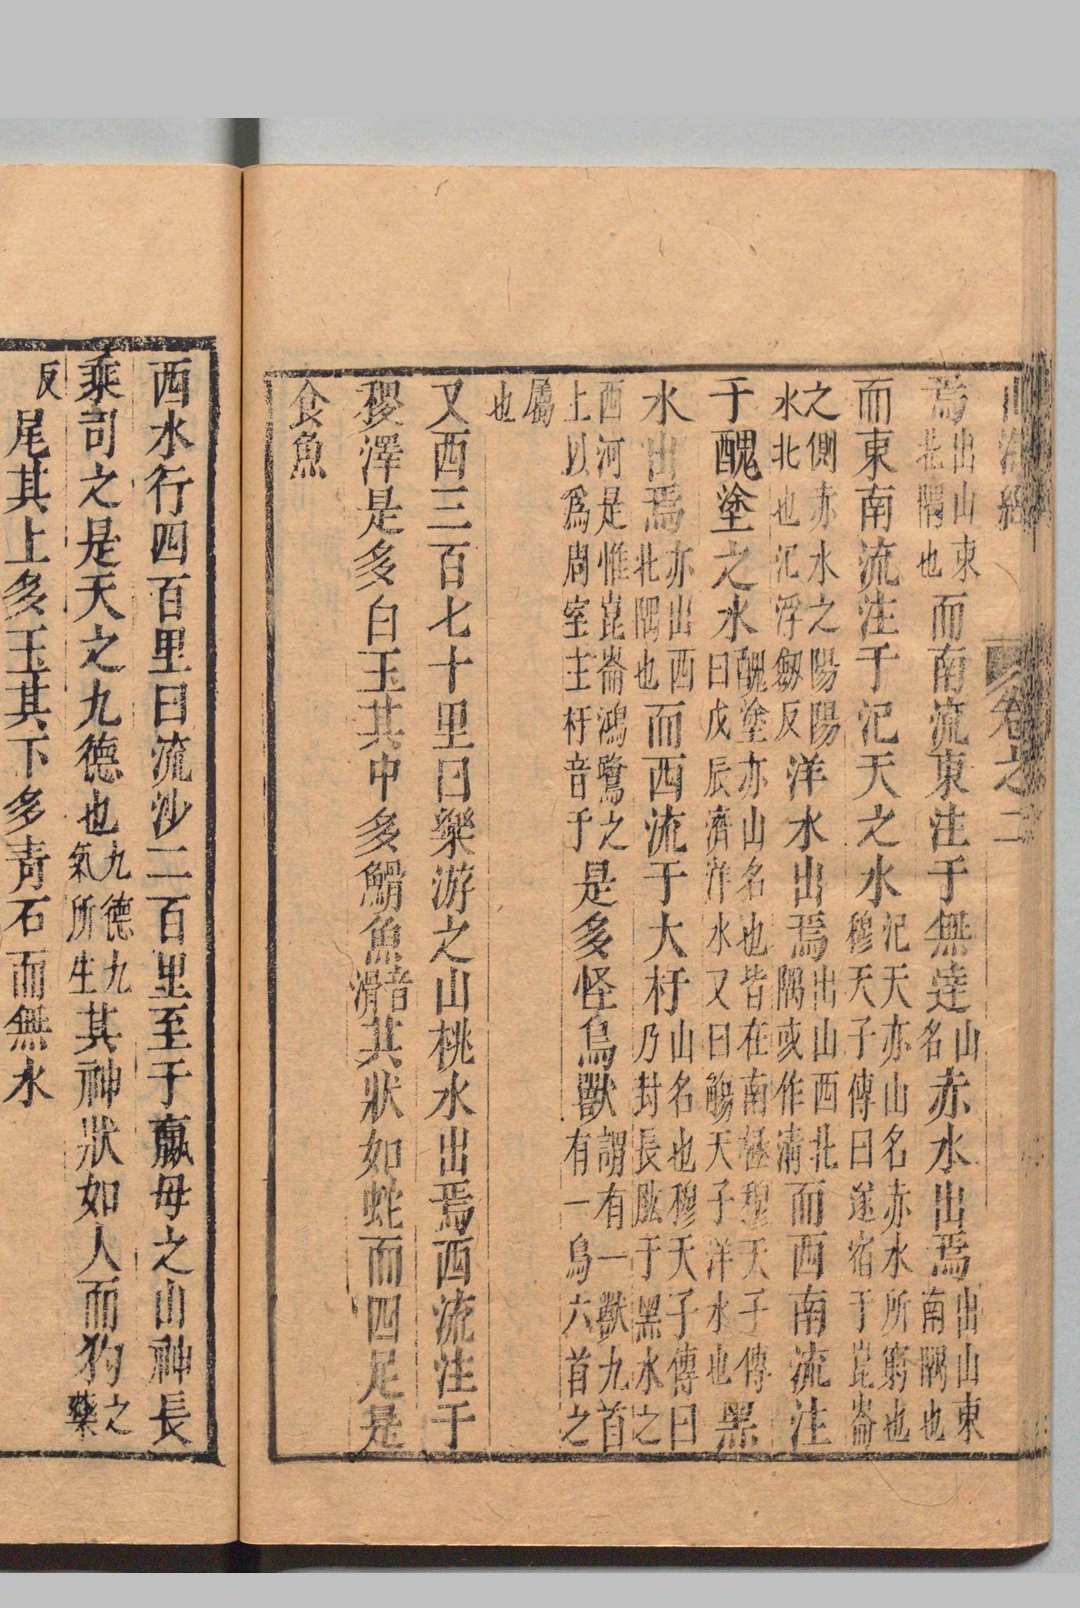 山海經 卷之二
焉出山東北隅也而南流東注于無達山名赤水出焉出山東南隅也
而東南流注于汜天之水汜天亦山名赤水所窮也穆天子傳曰遂宿于崑崙
之側赤水之陽陽水北也汜浮劔反洋水出焉出山西北隅或作清而西南流注
于醜塗之水醜塗亦山名也皆在南極穆天子傳曰戊辰濟洋水又曰觴天子洋水也黑
水出焉亦出西北隅也而西流于大杅山名也穆天子傳曰乃封長肱于黑水之
西河是惟崑崙鴻鷺之上以爲周室主杅音于是多怪鳥獸謂有一獸九首有一鳥六首之
屬
也
又西三百七十里曰樂游之山桃水出焉西流注于
稷澤是多白玉其中多䱻魚音滑其狀如蛇而四足是
食魚
西水行四百里曰流沙二百里至于蠃母之山神長
乘司之是天之九德也九德九氣所生其神狀如人而犳之藥
反尾其上多玉其下多青石而無水